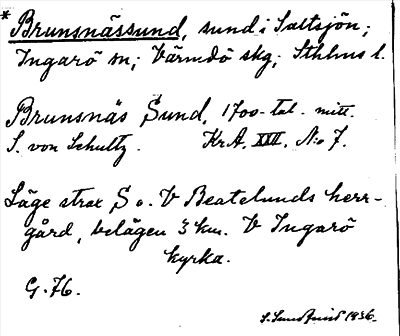 * Brunsnässund, sund i Saltsjön;
Ingarö sn; Värmdö skg; Sthlms l.
Brunsnäs Sund, 1700-tal. mitt.
S. von Schultz. KrA. XIII. No 7.
Läge strax S o. V Beatelunds herr-
gård, belägen 3 km. V Ingarö
kyrka.
G. 76.
1936.